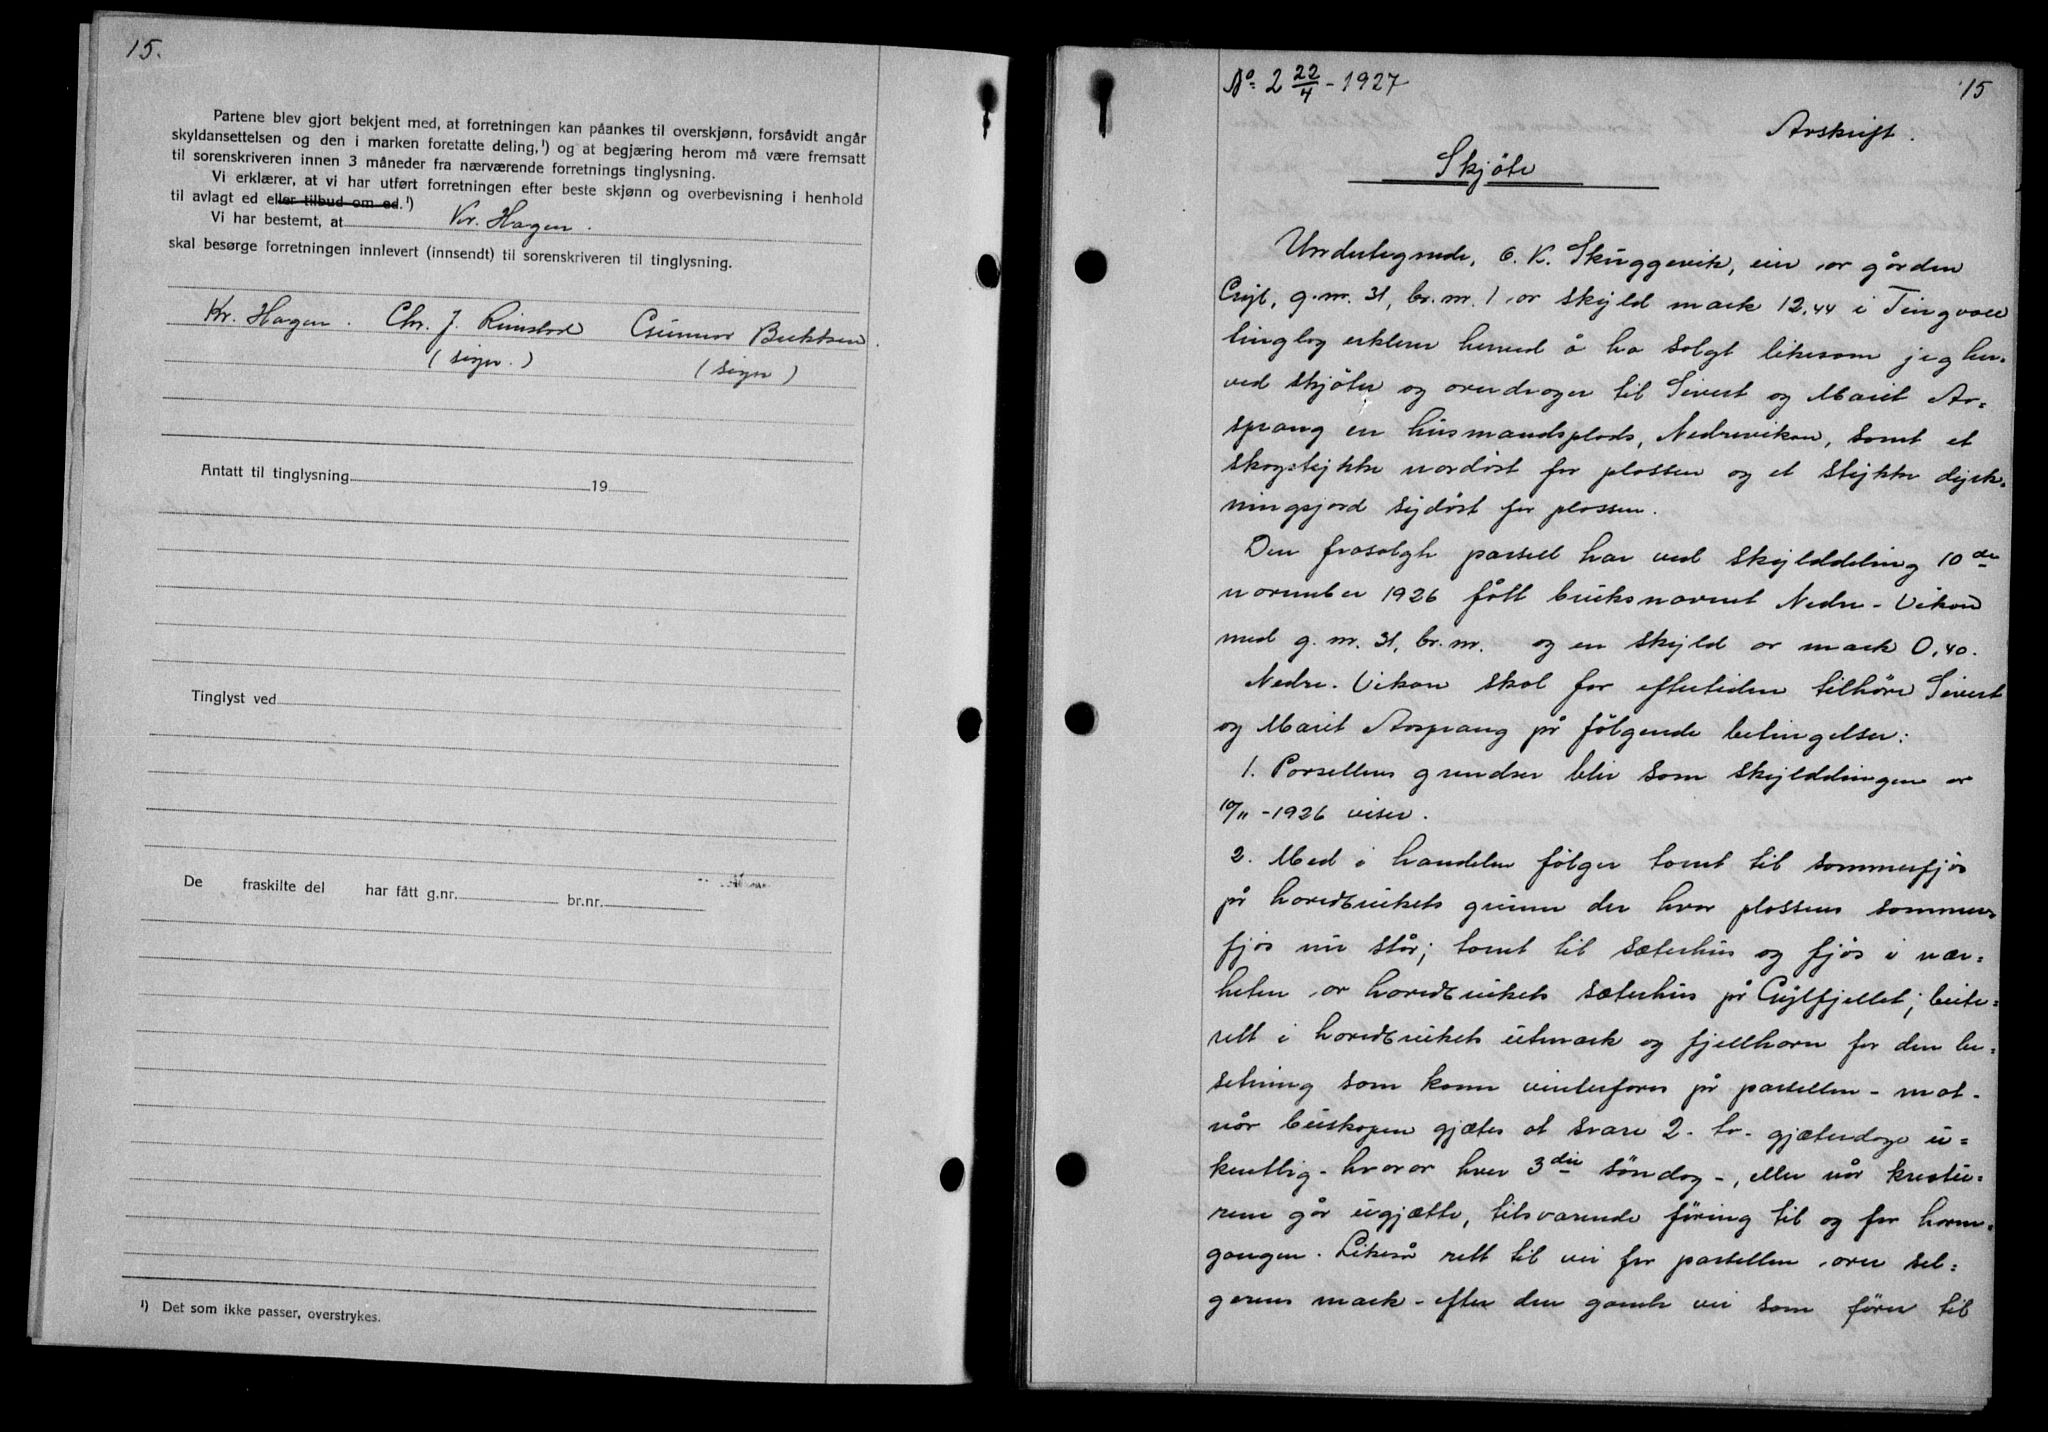 15.
Partene blev gjort bekjent med, at forretningen kan påankes til overskjønn, forsåvidt angår
skyldansettelsen og den i marken foretatte deling,¹) og at begjæring herom må være fremsatt
til sorenskriveren innen 3 måneder fra nærværende forretnings tinglysning.
Vi erklærer, at vi har utført forretningen efter beste skjønn og overbevisning i henhold
til avlagt ed eller tilbud om ed.¹)
Vi har bestemt, at Kr. Hagen.
skal besørge forretningen innlevert (innsendt) til sorenskriveren til tinglysning.
Kr. Hagen. Chr. J. Rimstad Gunnar
(sign.) (sign)
Antatt til tinglysning 19
Tinglyst ved
De fraskilte del har fått g.nr. br.nr.
¹) Det som ikke passer, overstrykes.
No 2 22/4 - 1927
15
Avskrift.
Skjøte
Undertegnede, O. K. Skuggevik, eier av gården
Gyl, g.nr. 31, br.nr. 1 av skyld mark 12,44 i Tingvoll
tinglag erklærer herved å ha solgt likesom jeg her-
ved skjøter og overdrager til Sivert og Marit Aa-
sprang en husmandsplads, Nedrevikan, samt et
skogstykke nordøst for plassen og et stykke dyrk-
ningsjord sydøst for plassen.
Den frasolgte parsell har ved skylddeling 10de
november 1926 fått bruksnavnet Nedre-Vikan
med g.nr. 31, br.nr. og en skyld av mark 0,40.
Nedre-Vikan skal for eftertiden tilhøre Sivert
og Marit Aasprang på følgende betingelser:
1. Parsellens grendser blir som skylddelingen av
10/11 - 1926 viser.
2. Med i handelen følger tomt til sommerfjøs
på hovedbrukets grunn der hvor plassens sommer-
fjøs nu står; tomt til sæterhus og fjøs i nær-
heten av hovedbrukets sæterhus på Gylfjellet; beite-
rett i hovedbrukets utmark og fjellhavn for den be-
setning som kann vinterfores på parsellen - mot
når buskapen gjætes at svare 2 - to - gjæterdage u-
kentlig - hvorav hver 3die søndag -, eller når kreatu-
rene går ugjætte, tilsvarende føring til og fra havne-
gangen. Likeså rett til vei for parsellen over sel-
gerens mark - efter den gamle vei som fører til